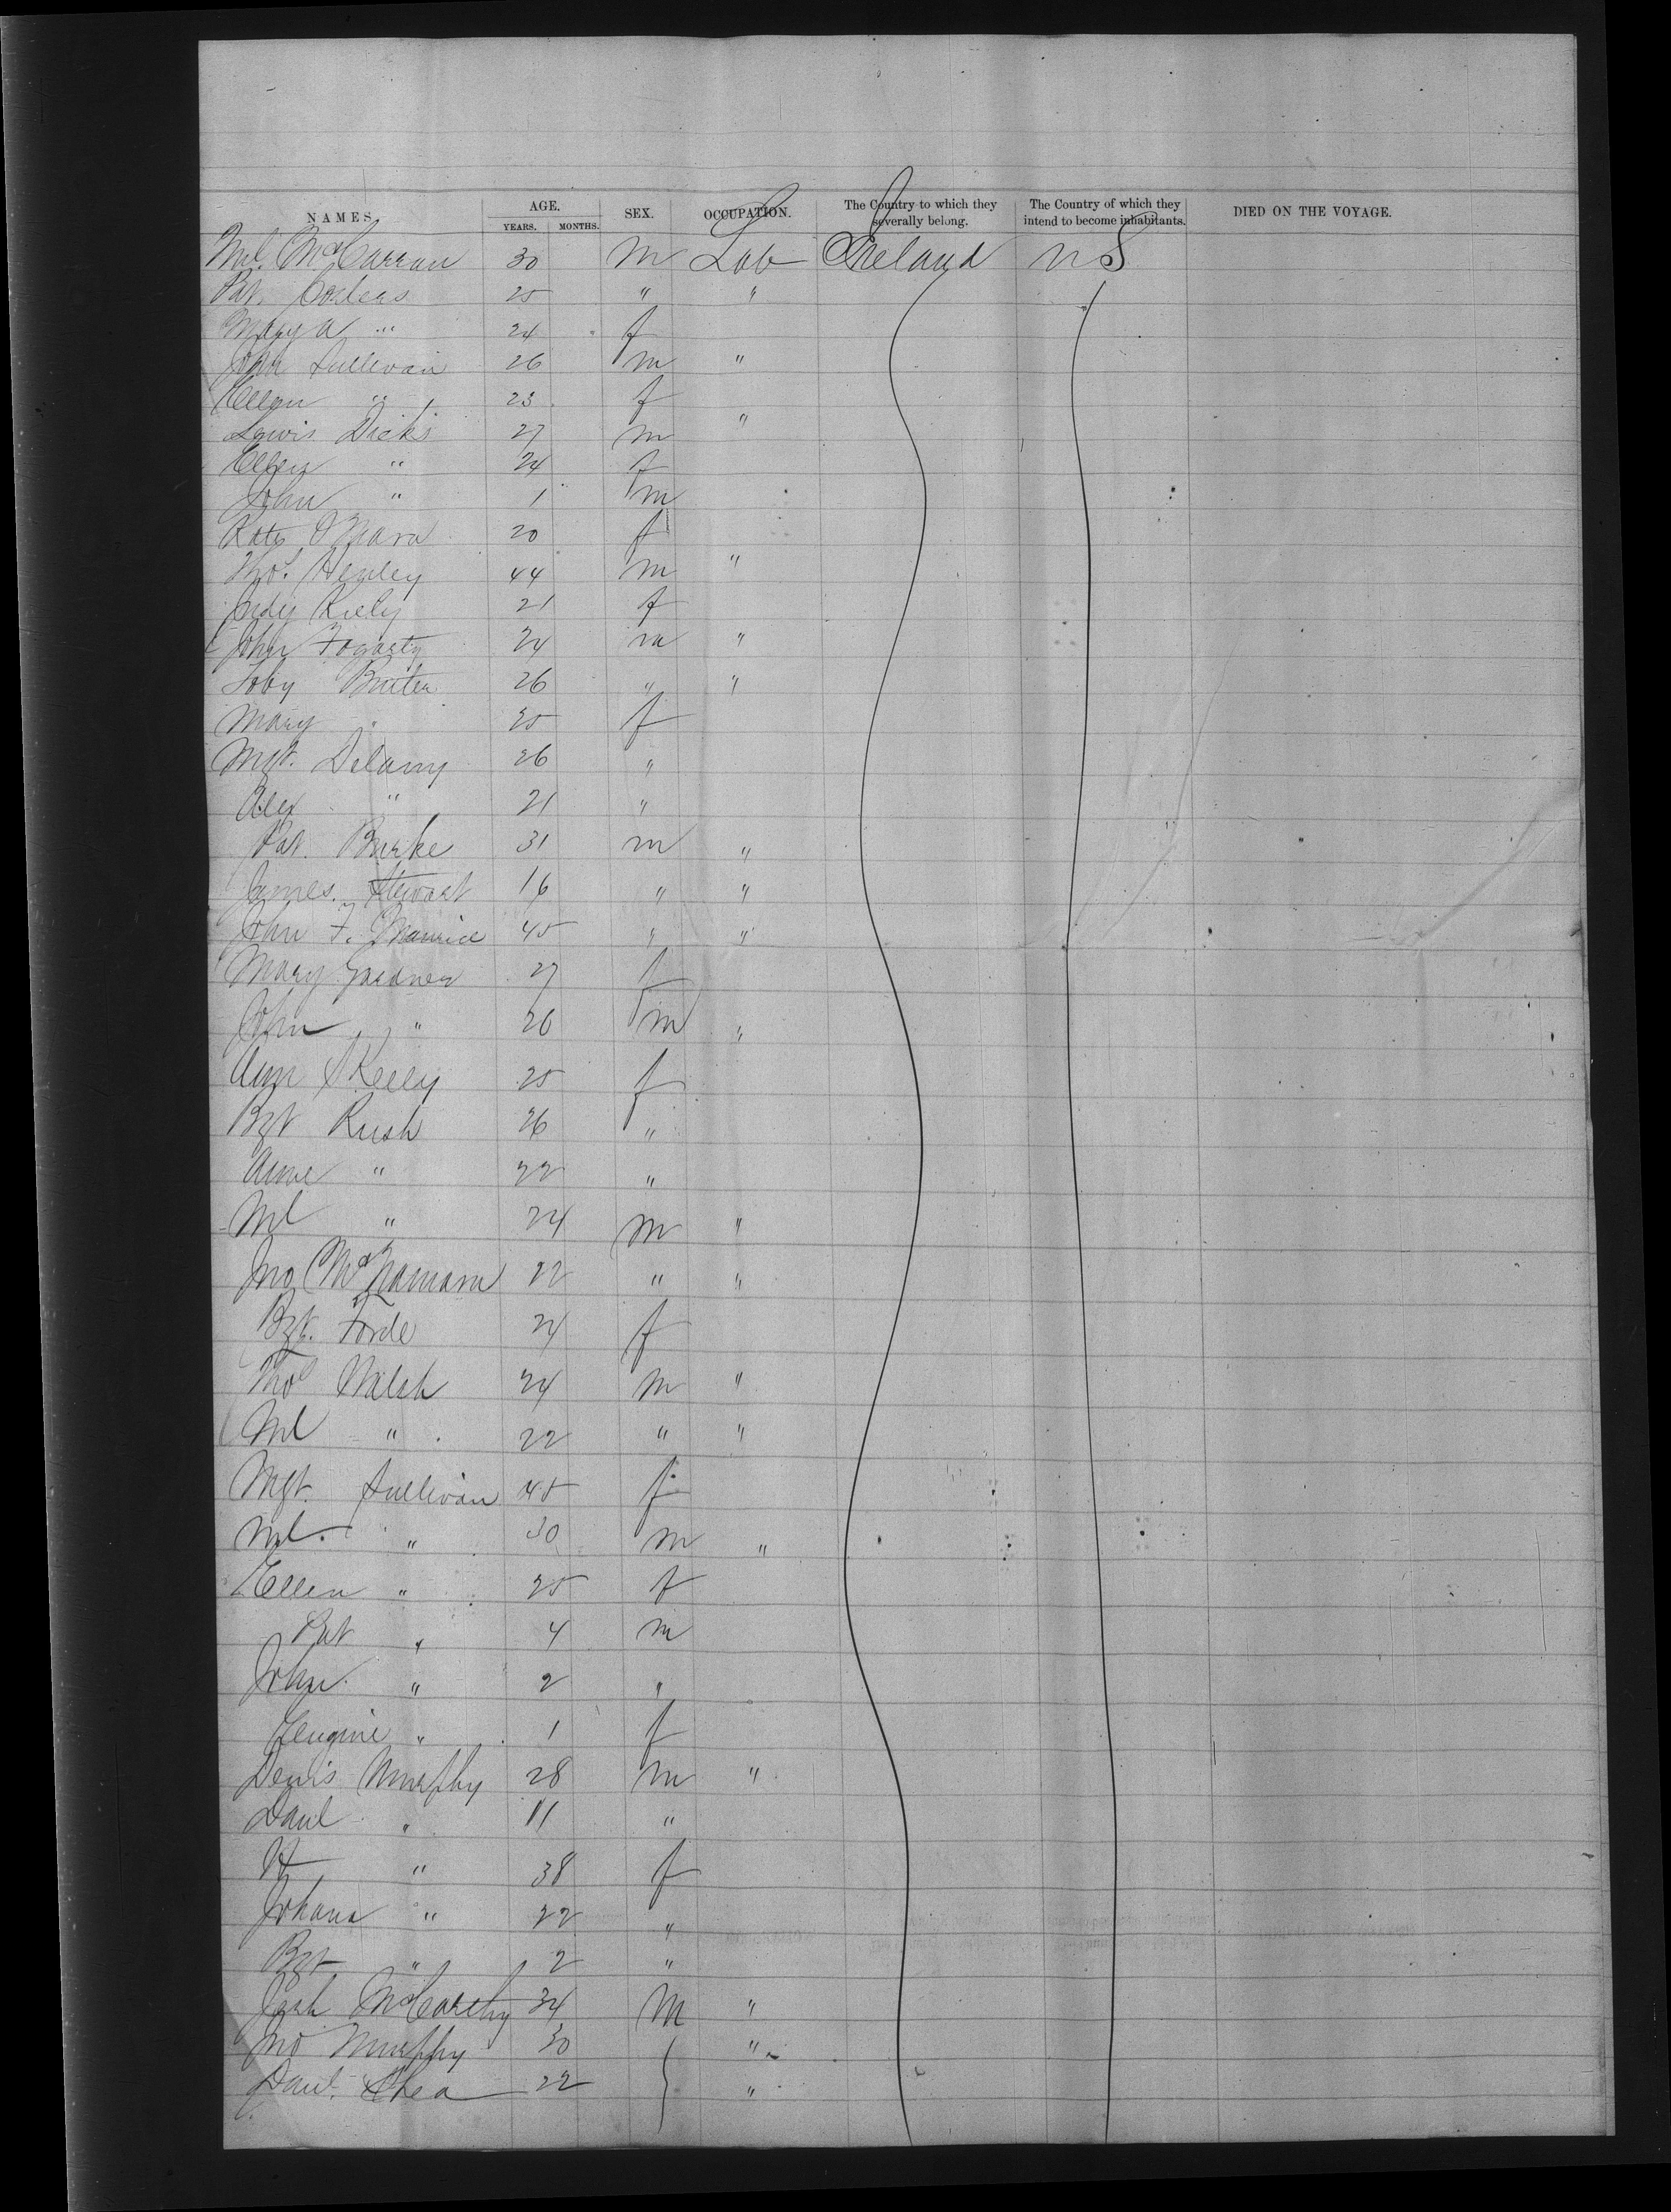 NAMES. AGE. YEARS. MONTHS. SEX. OCCUPATION. The Country to which they severally belong. The Country of which they intend to become inhabitants. DIED ON THE VOYAGE.
Ml. McCarran 30 m Lab Ireland U S
Pat. 25 " "
Mary A " 24 f
John Sullivan 26 m "
Ellen " 23 f
Lewis Dicks 27 m "
Ellen " 24 f
John " 1 m
Kate O'Mara 20 f
Thos. Henley 44 m "
Judy Kiely 21 f
John Fogarty 24 m "
Toby 26 " "
Mary " 25 f
Mgt. Delany 26 "
Alex " 21 "
Pat. Burke 31 m "
James Stewart 16 " "
John F. Maurice 45 " "
Mary Gardner 27 f
John " 26 m "
Ann Skelly 25 f
Bgt Rush 26 "
Anne " 22 "
Ml " 24 m "
Jno McNamara 22 " "
Bgt. Forde 24 f
Thos Walsh 24 m "
Ml " 22 " "
Mgt. Sullivan 45 f
Ml. " 30 m "
Ellen " 25 f
Pat " 4 m
John " 2 "
Eugine " 1 f
Denis Murphy 28 m "
Danl " 11 "
" 38 f
Johana " 22 "
Bgt " 2 "
McCarthy 34 m "
Jno Murphy 30 "
Danl. Shea 22 "